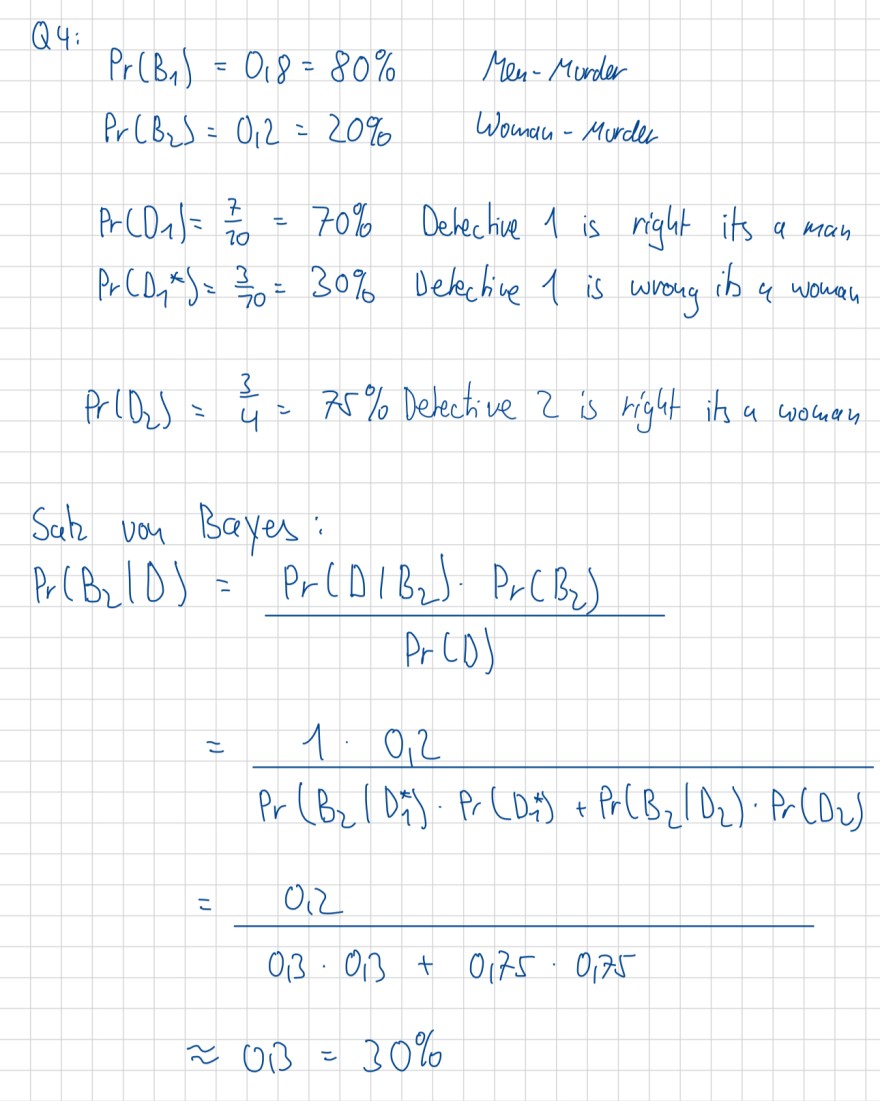 Q4:
Pr(B₁) = 0,8 = 80% Men-Murder
Pr(B₂) = 0,2 = 20% Woman-Murder
Pr(D₁) = 7/10 = 70% Detective 1 is right its a man
Pr(D₁*) = 3/10 = 30% Detective 1 is wrong its a woman
Pr(D₂) = 3/4 = 75% Detective 2 is right its a woman
Satz von Bayes:
Pr(B₂|D) = Pr(D|B₂) · Pr(B₂)
Pr(D)
= 1 · 0,2
Pr(B₂|D₁*) · Pr(D₁*) + Pr(B₂|D₂) · Pr(D₂)
= 0,2
0,3 · 0,3 + 0,75 · 0,75
≈ 0,3 = 30%